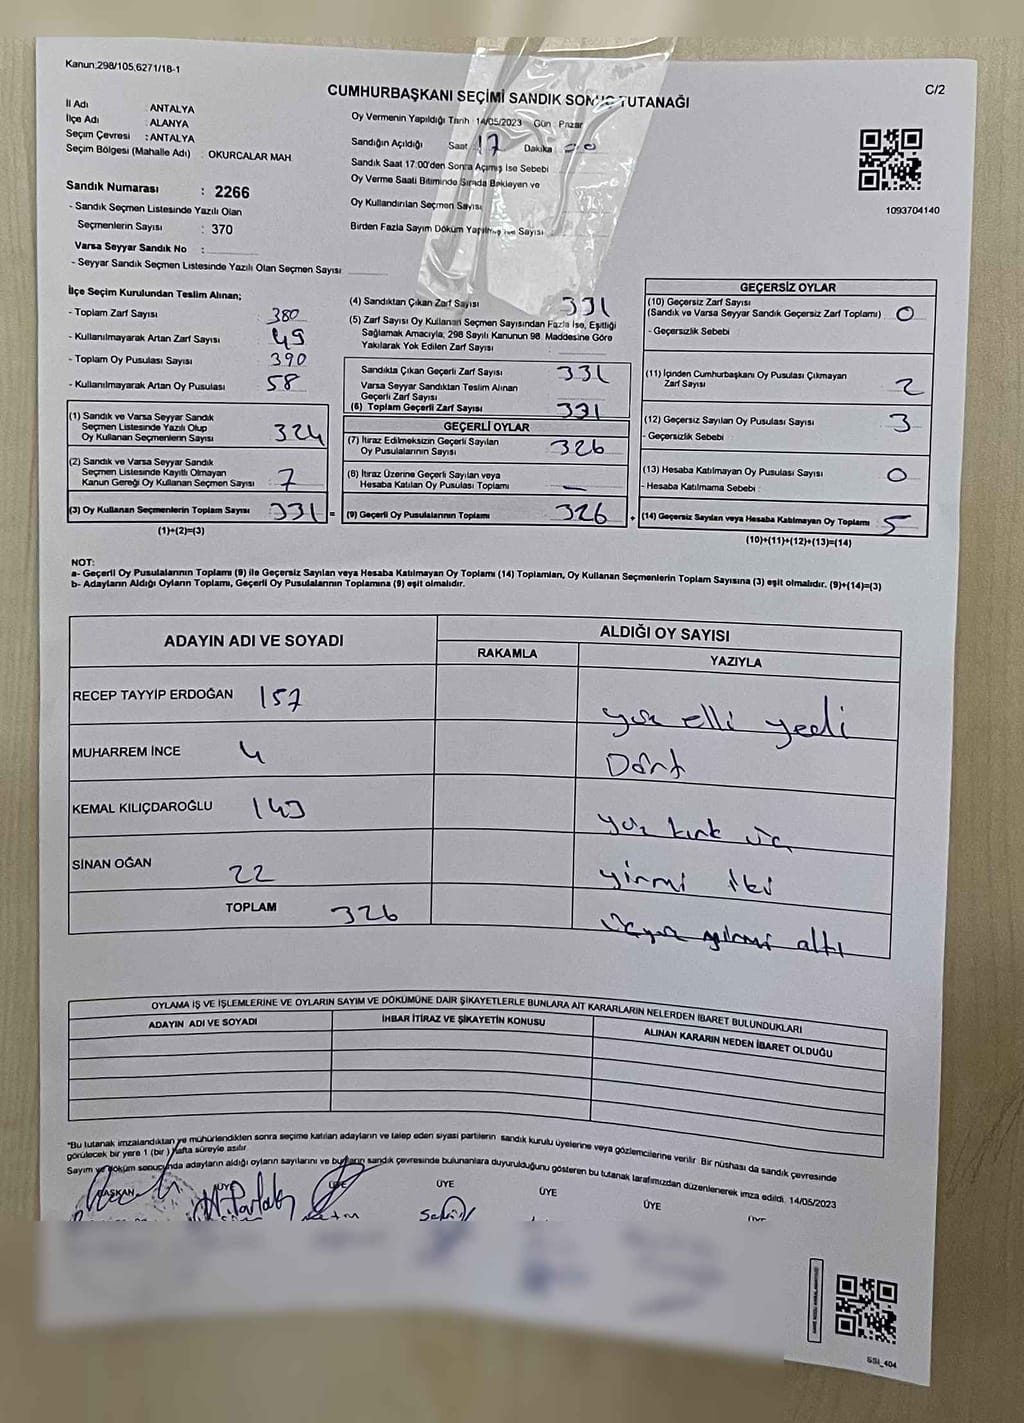 Kanun:298/105,6271/18-1
C/2
CUMHURBAŞKANI SEÇİMİ SANDIK SONUÇ TUTANAĞI
İl Adı : ANTALYA
İlçe Adı : ALANYA
Seçim Çevresi : ANTALYA
Seçim Bölgesi (Mahalle Adı) : OKURCALAR MAH
Sandık Numarası : 2266
- Sandık Seçmen Listesinde Yazılı Olan
Seçmenlerin Sayısı : 370
Varsa Seyyar Sandık No :
- Seyyar Sandık Seçmen Listesinde Yazılı Olan Seçmen Sayısı
Oy Vermenin Yapıldığı Tarih : 14/05/2023 Gün : Pazar
Sandığın Açıldığı Saat : 17 Dakika : 00
Sandık Saat 17:00'den Sonra Açılmış İse Sebebi
Oy Verme Saati Bitiminde Sırada Bekleyen ve
Oy Kullandırılan Seçmen Sayısı
Birden Fazla Sayım Döküm Yapılmış ise Sayısı :
1093704140
İlçe Seçim Kurulundan Teslim Alınan;
- Toplam Zarf Sayısı : 380
- Kullanılmayarak Artan Zarf Sayısı : 49
- Toplam Oy Pusulası Sayısı : 390
- Kullanılmayarak Artan Oy Pusulası : 58
(1) Sandık ve Varsa Seyyar Sandık
Seçmen Listesinde Yazılı Olup
Oy Kullanan Seçmenlerin Sayısı : 324
(2) Sandık ve Varsa Seyyar Sandık
Seçmen Listesinde Kayıtlı Olmayan
Kanun Gereği Oy Kullanan Seçmen Sayısı : 7
(3) Oy Kullanan Seçmenlerin Toplam Sayısı : 331 =
(1)+(2)=(3)
(4) Sandıktan Çıkan Zarf Sayısı 331
(5) Zarf Sayısı Oy Kullanan Seçmen Sayısından Fazla İse, Eşitliği
Sağlamak Amacıyla, 298 Sayılı Kanunun 98. Maddesine Göre
Yakılarak Yok Edilen Zarf Sayısı :
Sandıkta Çıkan Geçerli Zarf Sayısı : 331
Varsa Seyyar Sandıktan Teslim Alınan
Geçerli Zarf Sayısı :
(6) Toplam Geçerli Zarf Sayısı : 331
GEÇERLİ OYLAR
(7) İtiraz Edilmeksizin Geçerli Sayılan
Oy Pusulalarının Sayısı : 326
(8) İtiraz Üzerine Geçerli Sayılan veya
Hesaba Katılan Oy Pusulası Toplamı : —
(9) Geçerli Oy Pusulalarının Toplamı : 326 +
GEÇERSİZ OYLAR
(10) Geçersiz Zarf Sayısı
(Sandık ve Varsa Seyyar Sandık Geçersiz Zarf Toplamı) : 0
- Geçersizlik Sebebi :
(11) İçinden Cumhurbaşkanı Oy Pusulası Çıkmayan
Zarf Sayısı : 2
(12) Geçersiz Sayılan Oy Pusulası Sayısı : 3
- Geçersizlik Sebebi :
(13) Hesaba Katılmayan Oy Pusulası Sayısı : 0
- Hesaba Katılmama Sebebi :
(14) Geçersiz Sayılan veya Hesaba Katılmayan Oy Toplamı : 5
(10)+(11)+(12)+(13)=(14)
NOT:
a- Geçerli Oy Pusulalarının Toplamı (9) ile Geçersiz Sayılan veya Hesaba Katılmayan Oy Toplamı (14) Toplamları, Oy Kullanan Seçmenlerin Toplam Sayısına (3) eşit olmalıdır. (9)+(14)=(3)
b- Adayların Aldığı Oyların Toplamı, Geçerli Oy Pusulalarının Toplamına (9) eşit olmalıdır.
ADAYIN ADI VE SOYADI
ALDIĞI OY SAYISI
RAKAMLA YAZIYLA
RECEP TAYYİP ERDOĞAN 157 yüz elli yedi
MUHARREM İNCE 4 Dört
KEMAL KILIÇDAROĞLU 143 yüz kırk üç
SİNAN OĞAN 22 yirmi iki
TOPLAM 326 üçyüz yirmi altı
OYLAMA İŞ VE İŞLEMLERİNE VE OYLARIN SAYIM VE DÖKÜMÜNE DAİR ŞİKAYETLERLE BUNLARA AİT KARARLARIN NELERDEN İBARET BULUNDUKLARI
ADAYIN ADI VE SOYADI İHBAR İTİRAZ VE ŞİKAYETİN KONUSU ALINAN KARARIN NEDEN İBARET OLDUĞU
*Bu tutanak imzalandıktan ve mühürlendikten sonra seçime katılan adayların ve talep eden siyasi partilerin sandık kurulu üyelerine veya gözlemcilerine verilir. Bir nüshası da sandık çevresinde
görülecek bir yere 1 (bir) hafta süreyle asılır.
Sayım ve döküm sonucunda adayların aldığı oyların sayılarını ve bunların sandık çevresinde bulunanlara duyurulduğunu gösteren bu tutanak tarafımızdan düzenlenerek imza edildi. 14/05/2023
BAŞKAN ÜYE ÜYE ÜYE ÜYE ÜYE ÜYE
SSI_404